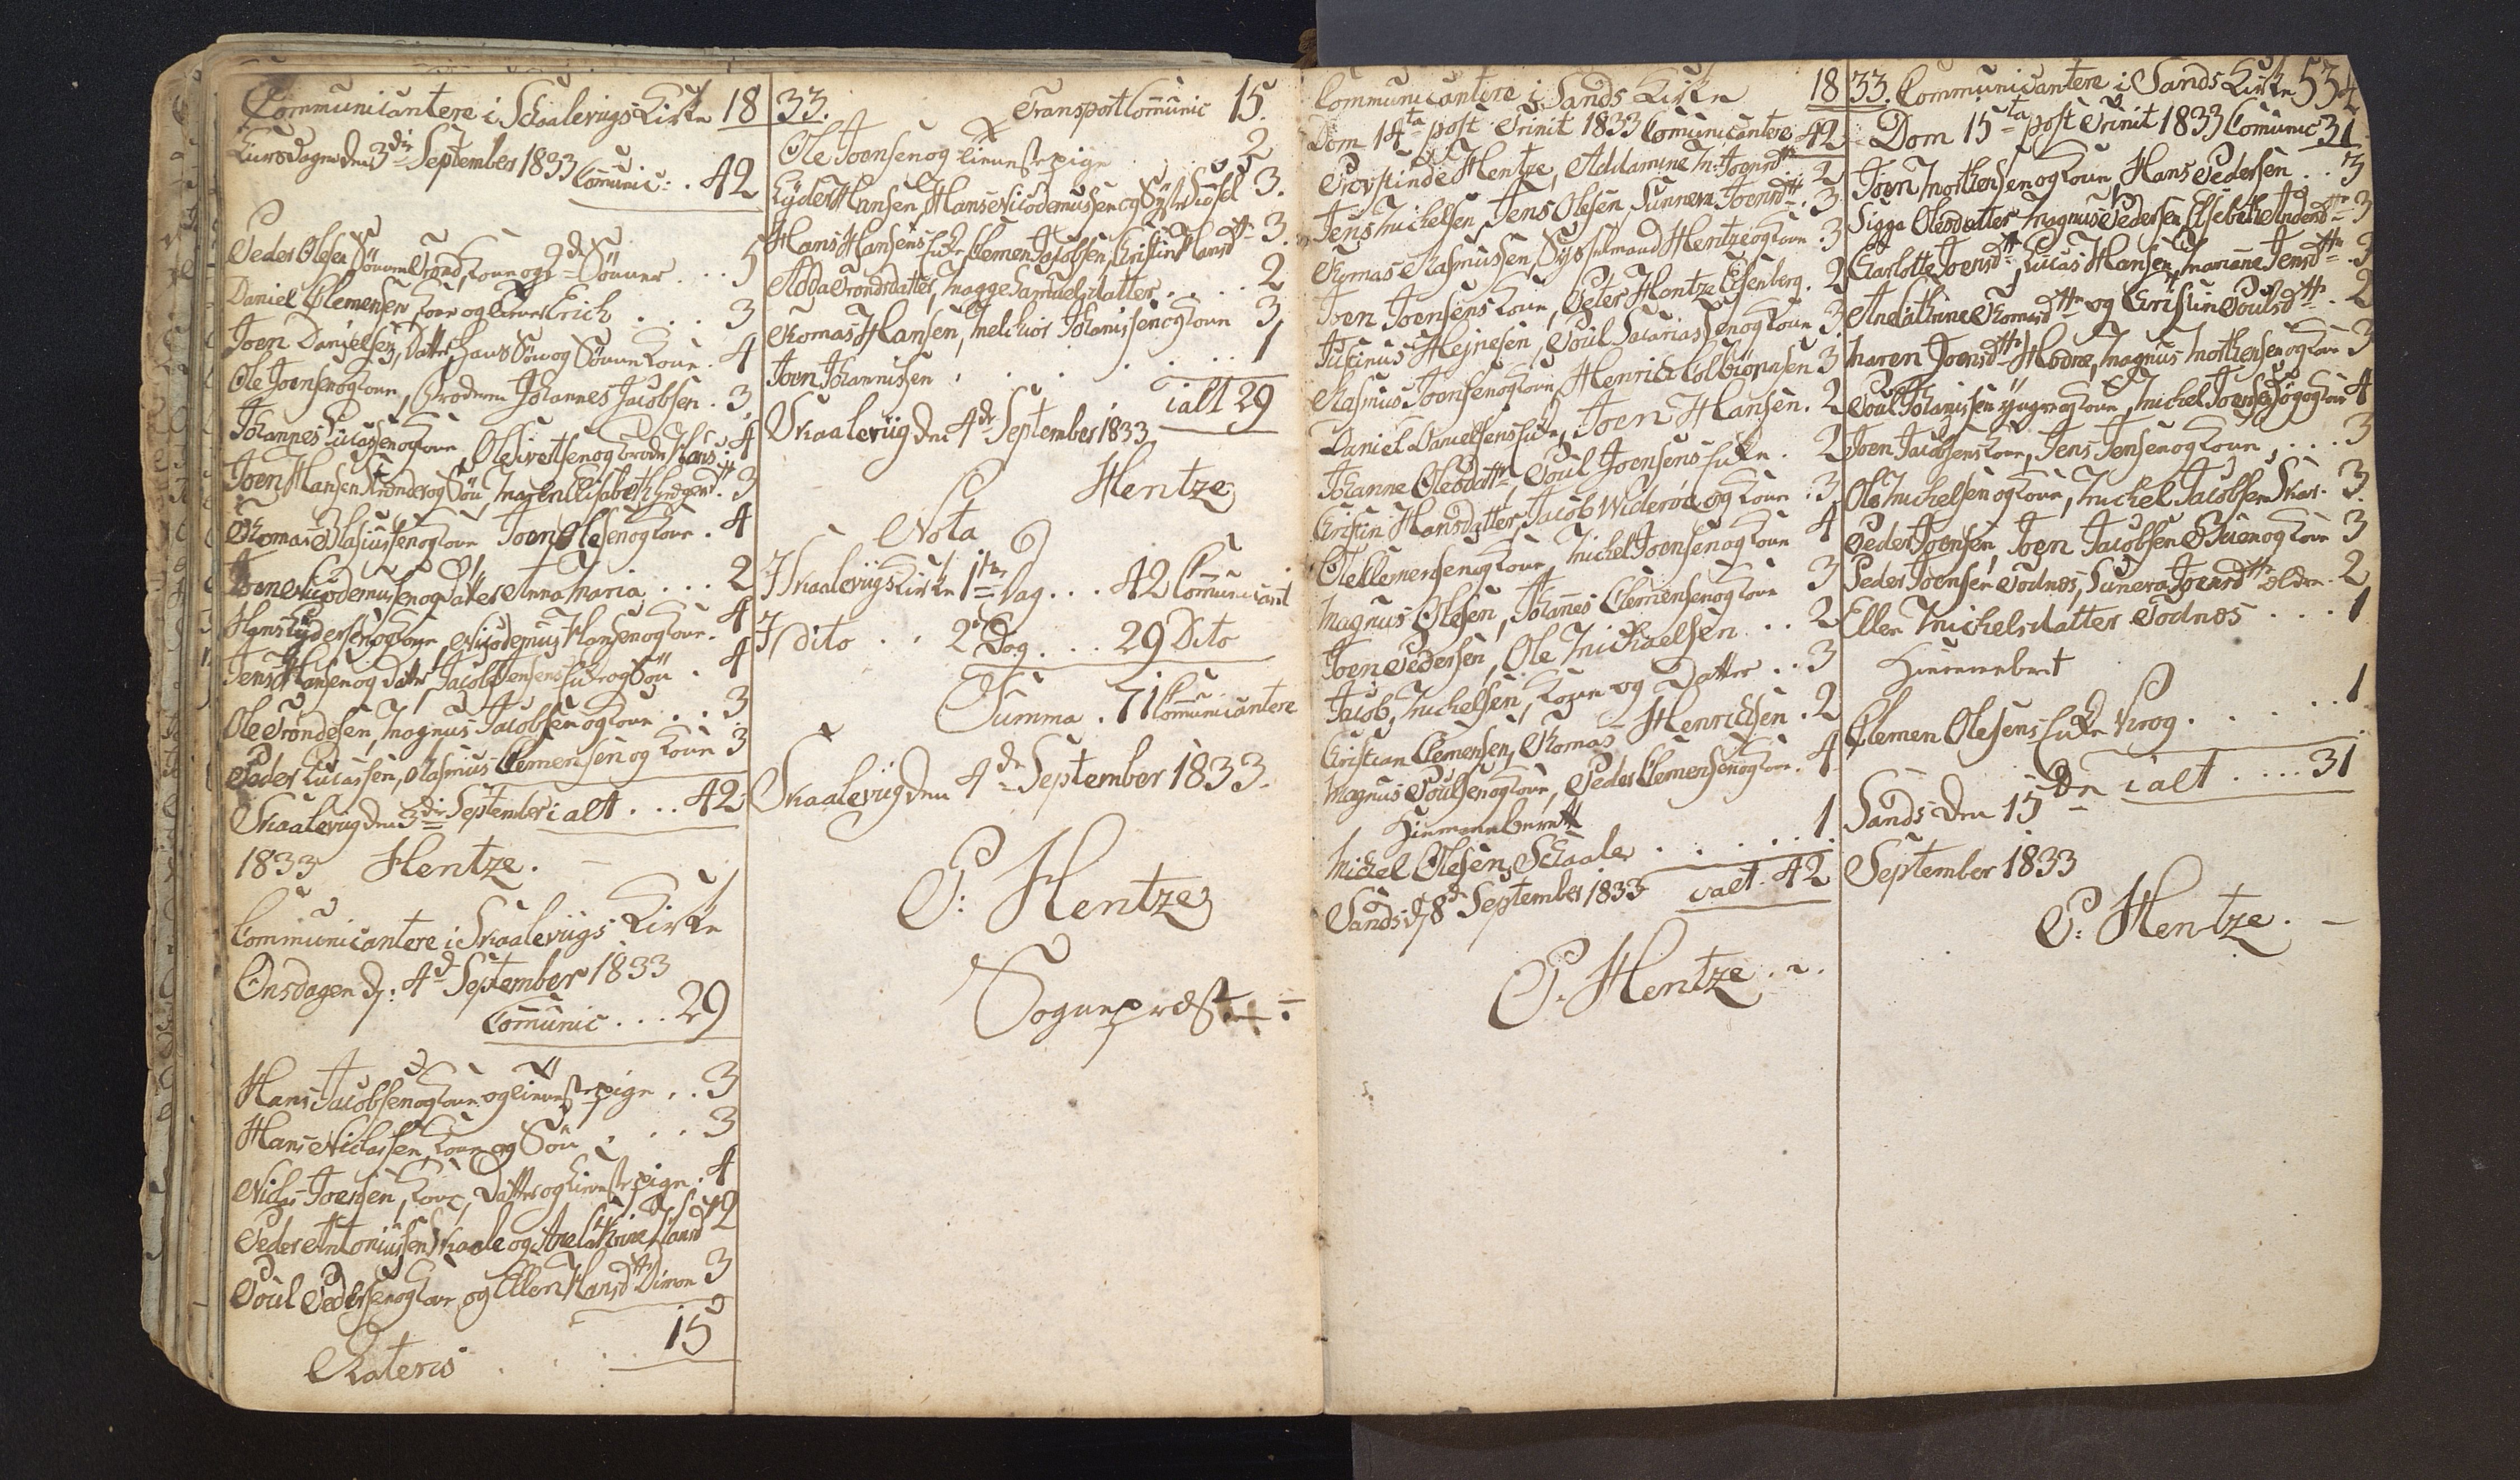 Communicantere i Schaalevigs Kirke 18
Tirsdagen den 3die September 1833
Comunic: . 42
Peder Olesen Sönnen Trond, Kone og 2de Sönner . . 5
Daniel Clemensen, Kone og Erich . . . 3
Joen Danielsen, Datter hans Sön og Sönnens Kone . 4
Ole Joensen og Kone, Broderen Johannes Jacobsen . 3
Johannes Lucassen og Kone, Ole og Broder Hans . 4
Joen Hansen og Sön, Maren Elisabeth . 3
Thomas Blasiussen og Kone Joen Olesen og Kone . 4
Joen Nicodemussen og Datter Anna Maria . . . 2
Hans Eydersen og Kone, Nicodemus Hansen og Kone . 4
Jens Hansen og Datter, Jacob Jensens Enke og Sön . 4
Ole Trondesen, Magnus Jacobsen og Kone . . 3
Peder Lucassen, Rasmus Clemensen og Kone 3
Skaalevig den 3die September i alt . . . 42
1833 Hentze .
Communicantere i Skaaleviigs Kirke
Onsdagen d: 4d September 1833
Comunic . . . 29
Hans Jacobsen og Kone og Tienestepige . . 3
Hans Niclassen, Kone og Sön . . . 3
Niels Joensen, Kone, Datter og Tienestepige . 4
Peder Antoniussen Skaale og Anelathrine Hansd 2
Poul Pedersen og Kone og Ellen Hansdttr Dimon 3
15
Lateris
33. Transport Comunic 15.
Ole Joensen og Tienestepige . . 2
Eyder Hansen, Hans Nicodemussen og 3.
Hans Hansens Enke, Clemen Jacobsen, Cristine Hansdttr 3.
Adda Trondsdatter, Magge Samuelsdatter . . . . 2
Thomas Hansen, Melchior Johanissen og Kone 3
Joen Johannissen . . . . . . 1
i alt 29
Skaaleviig den 4de September 1833
Hentze
Nota
I Skaaleviigs Kirke 1ste Dag . . . 42 Comunicant
I dito . . 2den Dag . . . 29 Dito
Summa . 71 Comunicantere
Skaaleviig den 4de September 1833.
P: Hentze
Sognepræst
Communicantere i Sands Kirke 18
Dom 14ta post Trinit 1833 Comunicantere 42
Provstinde Hentze, Addamine M: Joensdttr 2
Jens Michelsen, Jens Olesen, Sunneva Joensdttr . 3
Thomas Rasmussen, Sysselmand Hentze og Kone . 3
Joen Joensens Kone, Peter Hentze Eisenberg . 2
Justinus Hejnesen, Poul Sacariassen og Kone 3
Rasmus Joensen og Kone, Henrick Colbiørnsen 3
Daniel Danielsens Enke, Joen Hansen . 2
Johanne Olesdattr, Poul Joensens Enke . 2
Cristin Hansdatter, Jacob Widerøe og Kone . 3
Ole Clemensen og Kone, Michel Joensen og Kone 4
Magnus Olesen, Johannes Clemensen og Kone 3
Joen Pedersen, Ole Michaelsen . . 2
Jacob Michelsen, Kone og Datter . . 3
Cristian Clemensen, Thomas Henricksen . 2
Magnus Poulsen og Kone, Peder Clemensen og Kone . 4
Hiemmeberett
Michel Olesen Schaaler . . . . . 1
Sands d: 8de September 1833 i alt . 42
P. Hentze . .
33. Communicantere i Sands Kirke
Dom 15ta post Trinit 1833 Comunic 31
Joen Mortensen og Kone, Hans Pedersen . . 3
Sigga Olesdatter, Magnus Pedersen, Elsebeth 3
Carlotte Joensdttr, Lucas Hansen, Mariane Jensdttr . 3
Anelathrine Thomasdttr og Cristin Poulsdttr . 2
Maren Joensdttr Modne, Magnus Mortensen og Kone 3
Poul Johanissen og Kone, Michel Joensen og Kone 4
Joen Jacobsens Kone, Jens Jensen og Kone . . . 3
Ole Michelsen og Kone, Michel Jacobsen . 3
Peder Joensen, Joen Jacobsen og Kone 3
Peder Joensen Todnæs, Suneva Joensdttr ældre . 2
Ellen Michelsdatter Todnæs . . . 1
Hiemmebert
Clemen Olesens Enke Krog . . . . . 1
i alt . . . . 31
Sands den 15de
September 1833
P: Hentze .